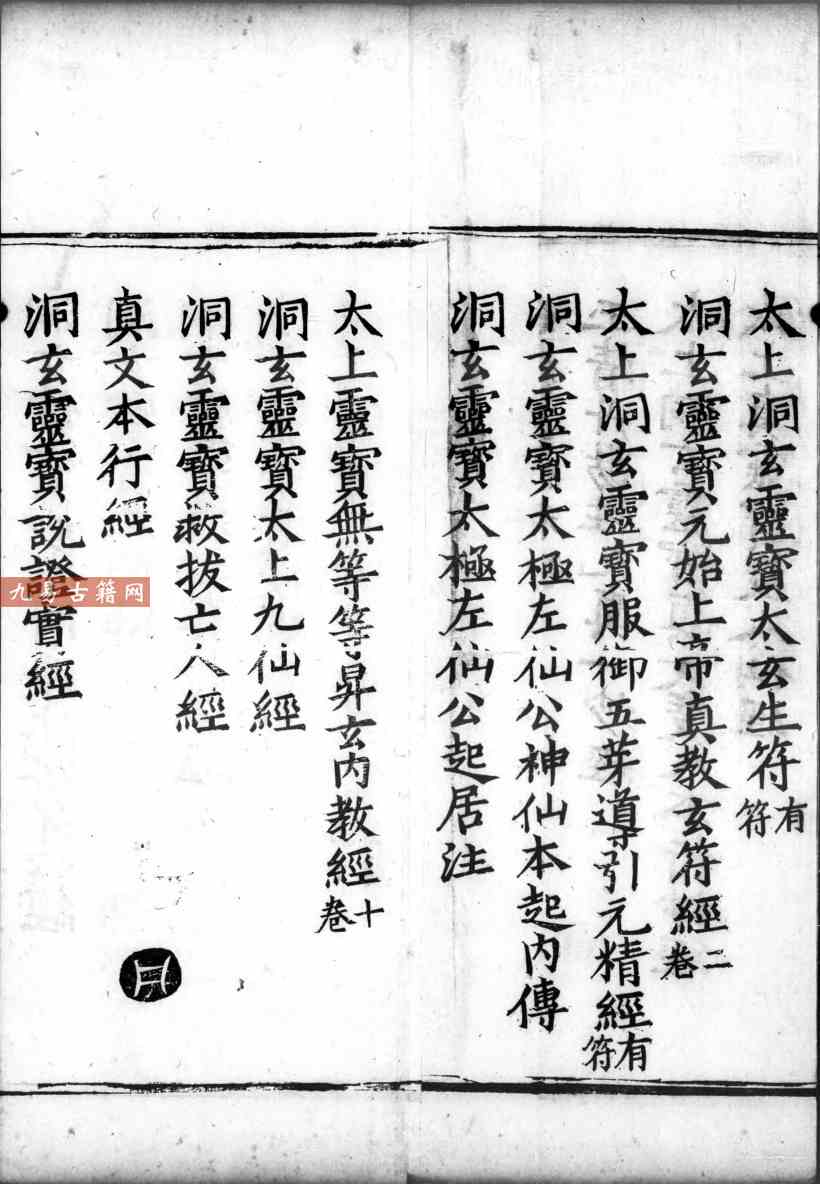 太上洞玄靈寶太玄生符有符
洞玄靈寶元始上帝真教玄符經二卷
太上洞玄靈寶服御五芽導引元精經有符
洞玄靈寶太極左仙公神仙本起內傳
洞玄靈寶太極左仙公起居注
太上靈寶無等等昇玄内教經十卷
洞玄靈寶太上九仙經
洞玄靈寶救拔亡人經
真文本行經
洞玄靈寶說證實經
九易古籍网